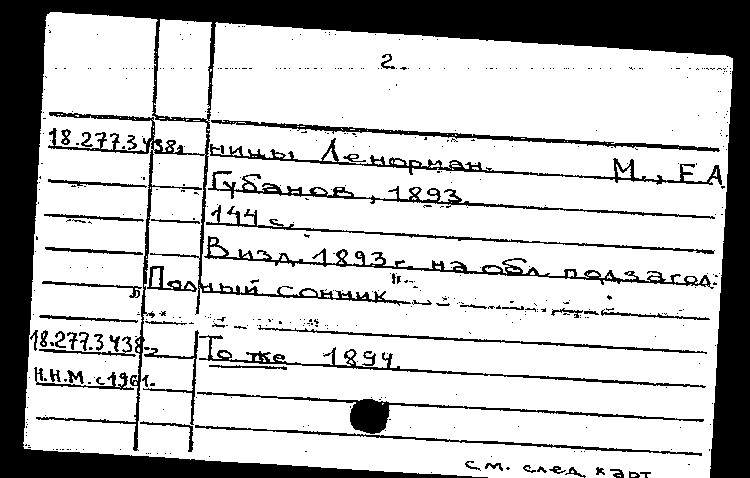 2.
18.277.3.438а ницы Ленорман. М., Е.А.
Губанов, 1893.
144 с.
В изд. 1893 г. на обл. подзагол.
"Полный сонник"
18.277.3.438 То же 1894.
Н.Н.М. с 1961.
см. след. карт